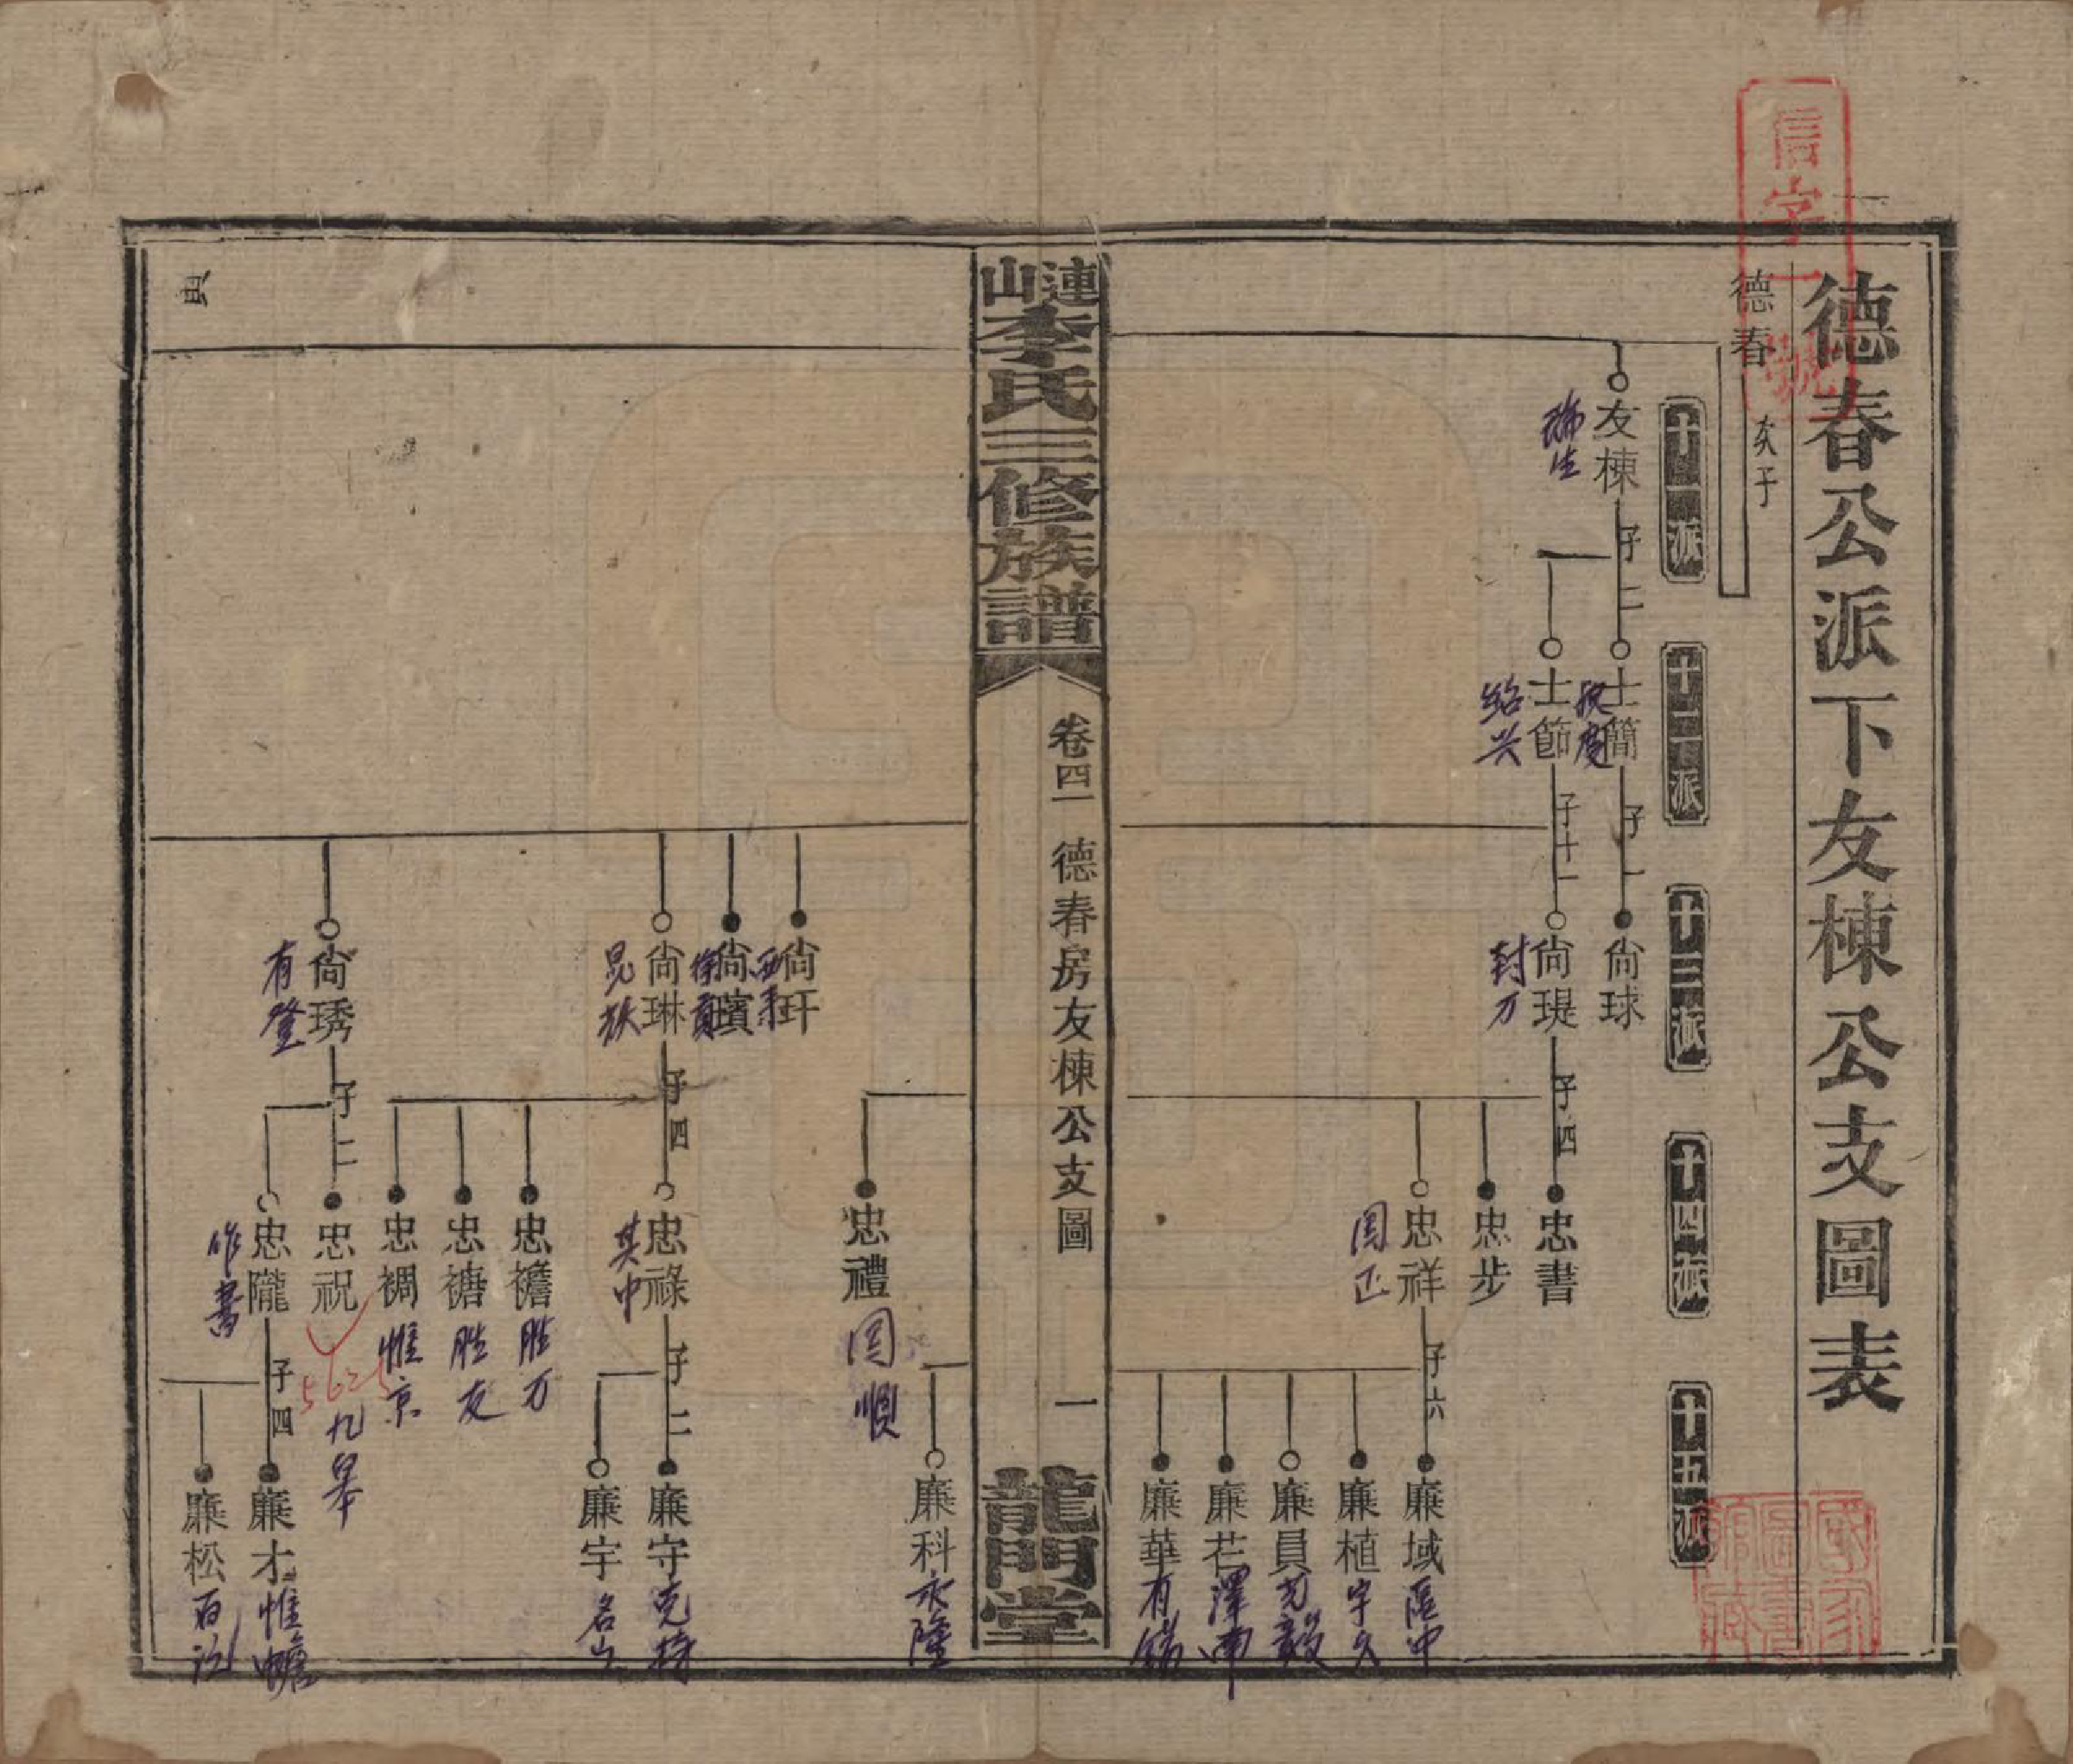 德春公派下友棟公支圖表
信字一號
德春
次子
十一派
十二派
十三派
十四派
十五派
友棟
子二
瑞生
士簡
子一
士節
子十一
紹兴
尙球
尙瑅
子四
封万
忠書
忠步
忠祥
子六
国正
廉域
區中
廉植
宇久
廉員
克毅
廉芒
澤南
廉華
有錫
連山李氏三修族譜
卷四一
德春房友棟公支圖
一
龍門堂
廉科
永隆
忠禮
国順
尙玕
尙璸
尙琳
子四
忠祿
子二
其中
廉守
克持
廉宇
名山
忠襜
胜万
忠禟
胜友
忠裯
惟京
尙琇
子二
有登
忠祝
九皋
忠隴
子四
作書
廉才
惟蟾
廉松